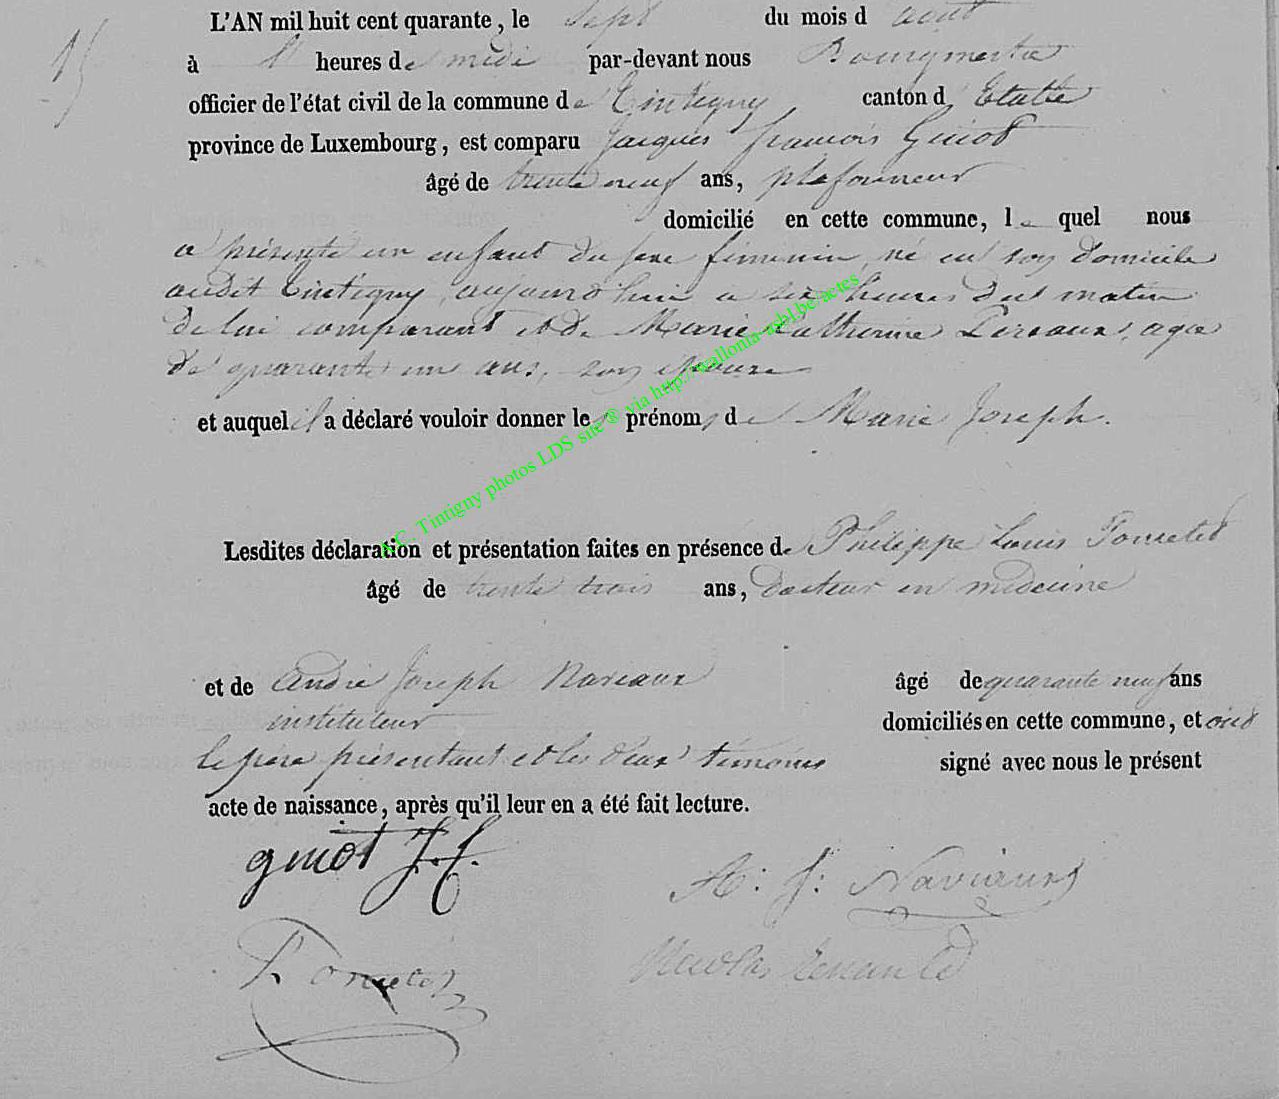 15
L'AN mil huit cent quarante, le sept du mois d août
à heures de midi par-devant nous Bourgmestre
officier de l'état civil de la commune de Tintigny, canton d' Etalle
province de Luxembourg, est comparu Jacques François Guiot
âgé de trente neuf ans, plafonneur
domicilié en cette commune, le quel nous
a présenté un enfant du sexe féminin, né en son domicile
audit Tintigny, aujourd'hui a six heures du matin
de lui comparant et de Marie Catherine agée
de quarante un ans, son épouse
et auquel il a déclaré vouloir donner les prénoms de Marie Joseph.
A.C. Tintigny photos LDS site ® via http://wallonia-asbl.be/actes
Lesdites déclaration et présentation faites en présence de Philippe Louis
âgé de trente trois ans, docteur en médecine
et de André Joseph Naviaux âgé de quarante neuf ans
instituteur domiciliés en cette commune, et ont
le père présentant et les deux témoins signé avec nous le présent
acte de naissance, après qu'il leur en a été fait lecture.
guiot J. f.
A: J: Naviaux
Nicolas